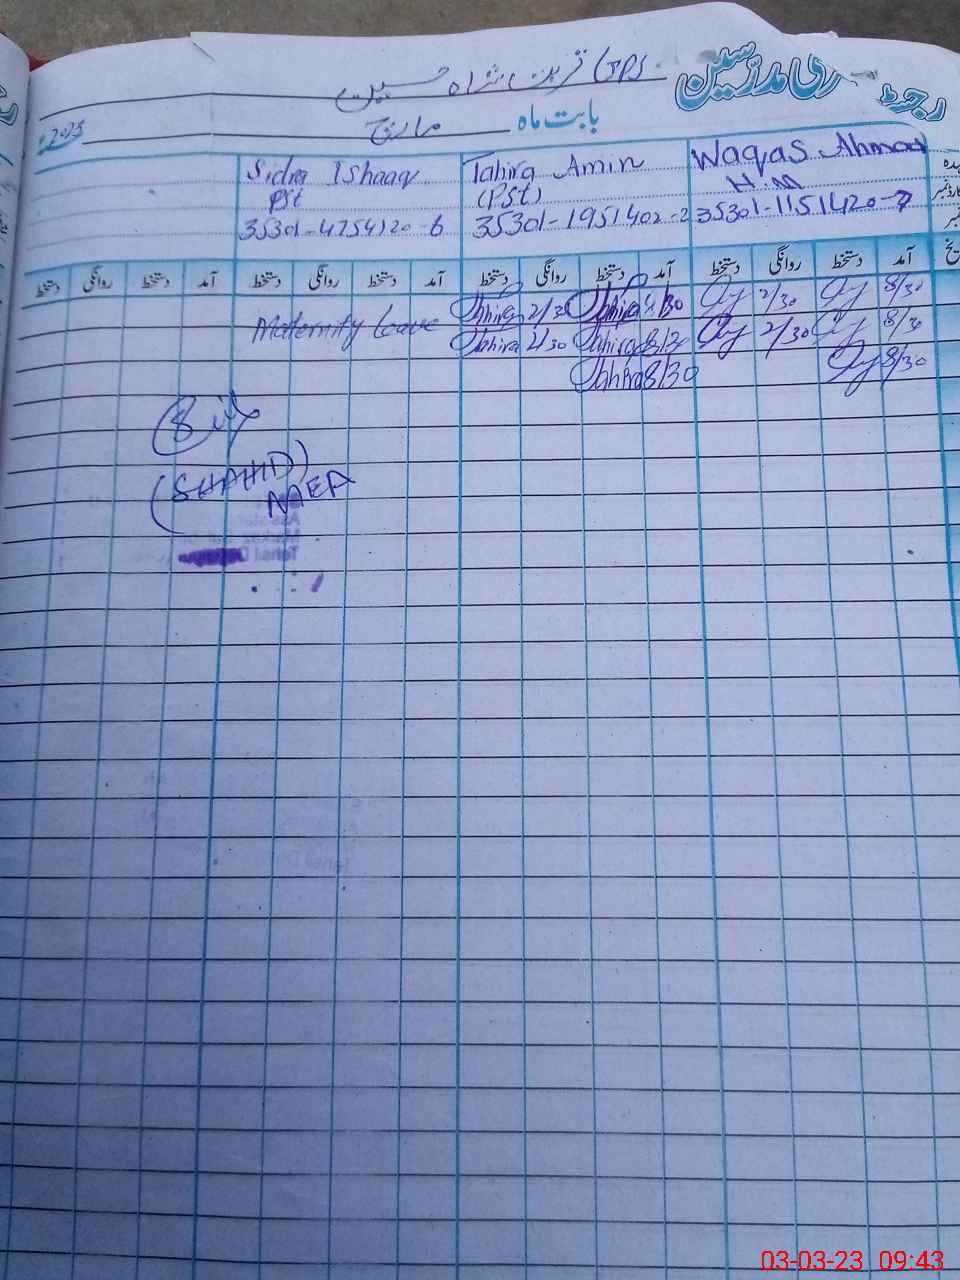 رجسٹر حاضری مدرسین GPS قرین شاہ حسین
بابت ماہ مارچ 2023ء
Waqas Ahmad
H.M
35301-1151420-7
Tahira Amin
(Pst)
35301-1951402-2
Sidra Ishaaq
Pst
35301-4754120-6
آمد دستخط روانگی دستخط آمد دستخط روانگی دستخط آمد دستخط روانگی دستخط آمد دستخط روانگی دستخط
8/30 2/30 8/30 Tahira 2/30 Tahira
8/30 2/30 8/30 Tahira 2/30 Tahira Maternity Leave
8/30 8/30 Tahira
(SHAHID)
MEA
03-03-23 09:43